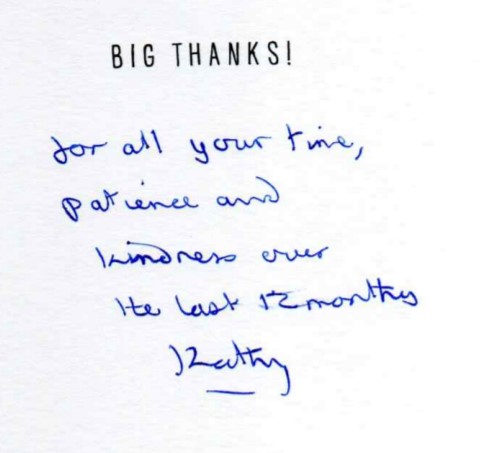 BIG THANKS!
for all your time,
patience and
kindness over
the last 12 months
Kathy